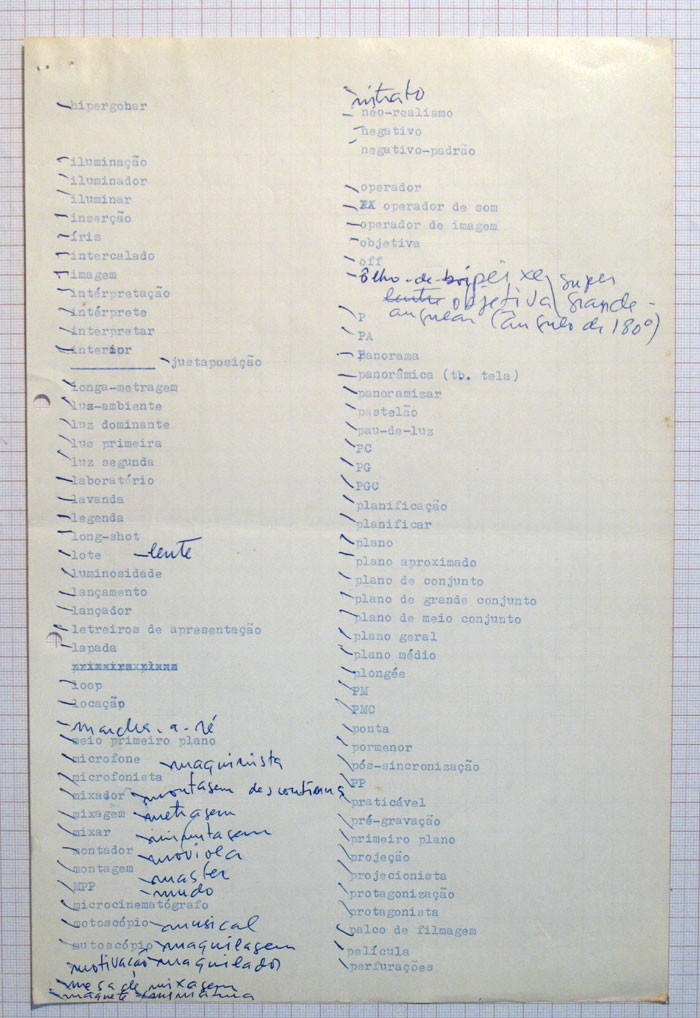 hipergohar
iluminação
iluminador
iluminar
inserção
íris
intercalado
imagem
intérpretação
intérprete
interpretar
interior
juxtaposição
longa-metragem
luz-ambiente
luz dominante
luz primeira
luz segunda
laboratório
lavanda
legenda
long-shot
lote lente
luminosidade
lançamento
lançador
letreiros de apresentação
lapada
primeiro plano
loop
locação
marcha-a-ré
meio primeiro plano
microfone maquinista
microfonista
mixador montagem descontínua
mixagem metragem
mixar minutagem
montador moviola
montagem master
MPP mudo
microcinematógrafo
motoscópio musical
autoscópio maquilagem
motivação maquilador
mesa de mixagem
maquete
nitrato
neo-realismo
negativo
negativo-padrão
operador
operador de som
operador de imagem
objetiva
off
ôlho-de-boi peixe, super
lente objetiva grande-
angular (ângulo de 180º)
P
PA
Panorama
panorâmica (tb. tela)
panoramizar
pastelão
pau-de-luz
PC
PG
PGC
planificação
planificar
plano
plano aproximado
plano de conjunto
plano de grande conjunto
plano de meio conjunto
plano geral
plano médio
plongée
PM
PMC
ponta
pormenor
pós-sincronização
PP
praticável
pré-gravação
primeiro plano
projeção
projecionista
protagonização
protagonista
palco de filmagem
película
perfurações